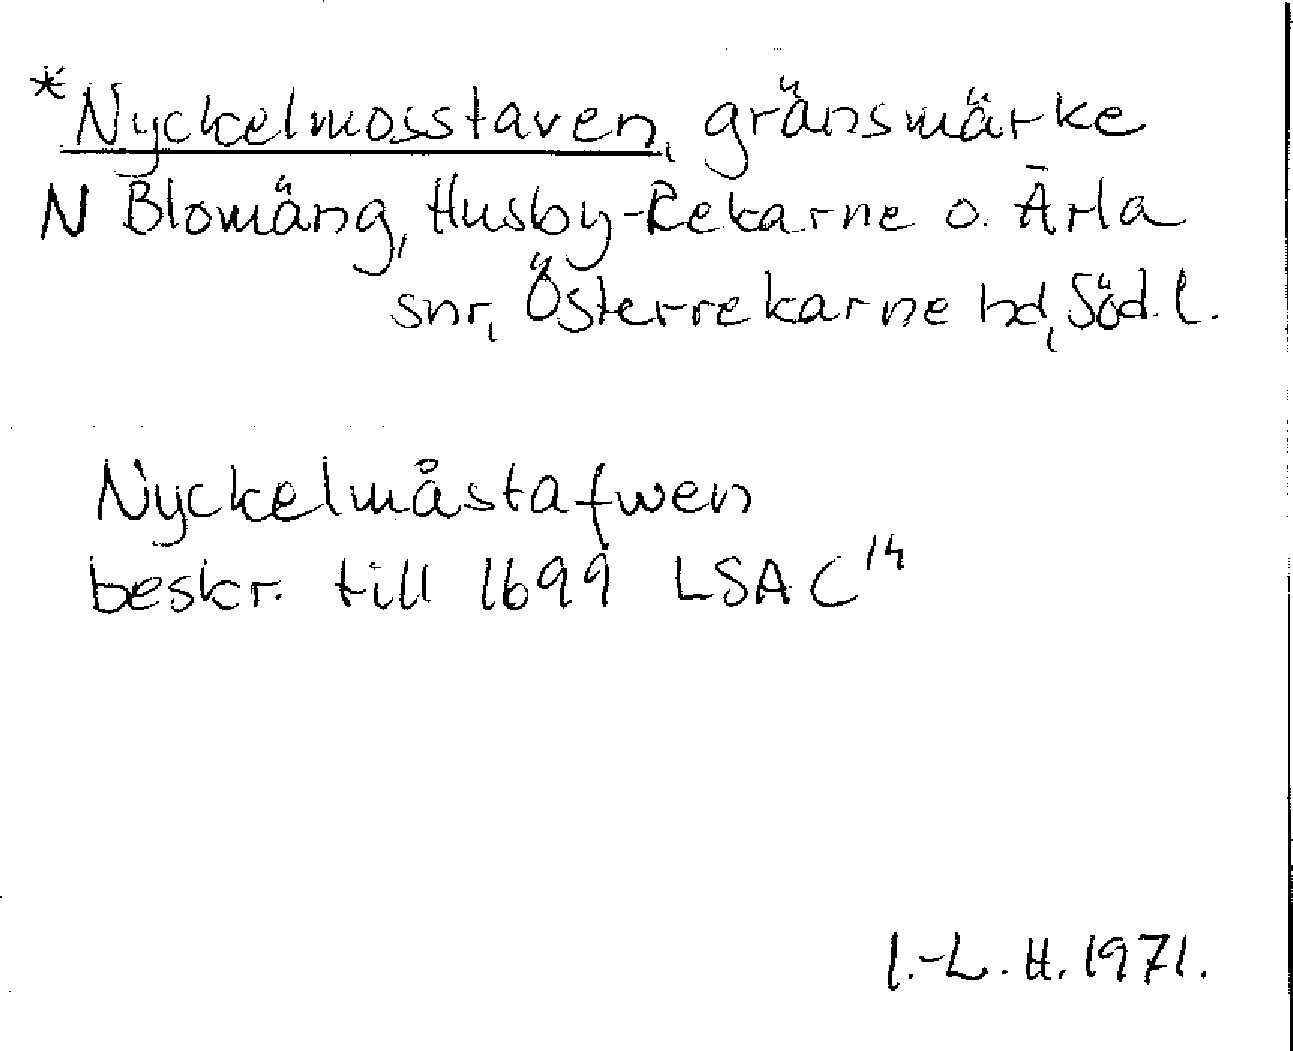 *Nyckelmosstaven, gränsmärke
N Blomäng, Husby-Rekarne o. Ärla
snr, Österrekarne hd, Söd. l.
Nyckelmåstafwen
beskr. till 1699 LSA C¹⁴
I.-L. H. 1971.